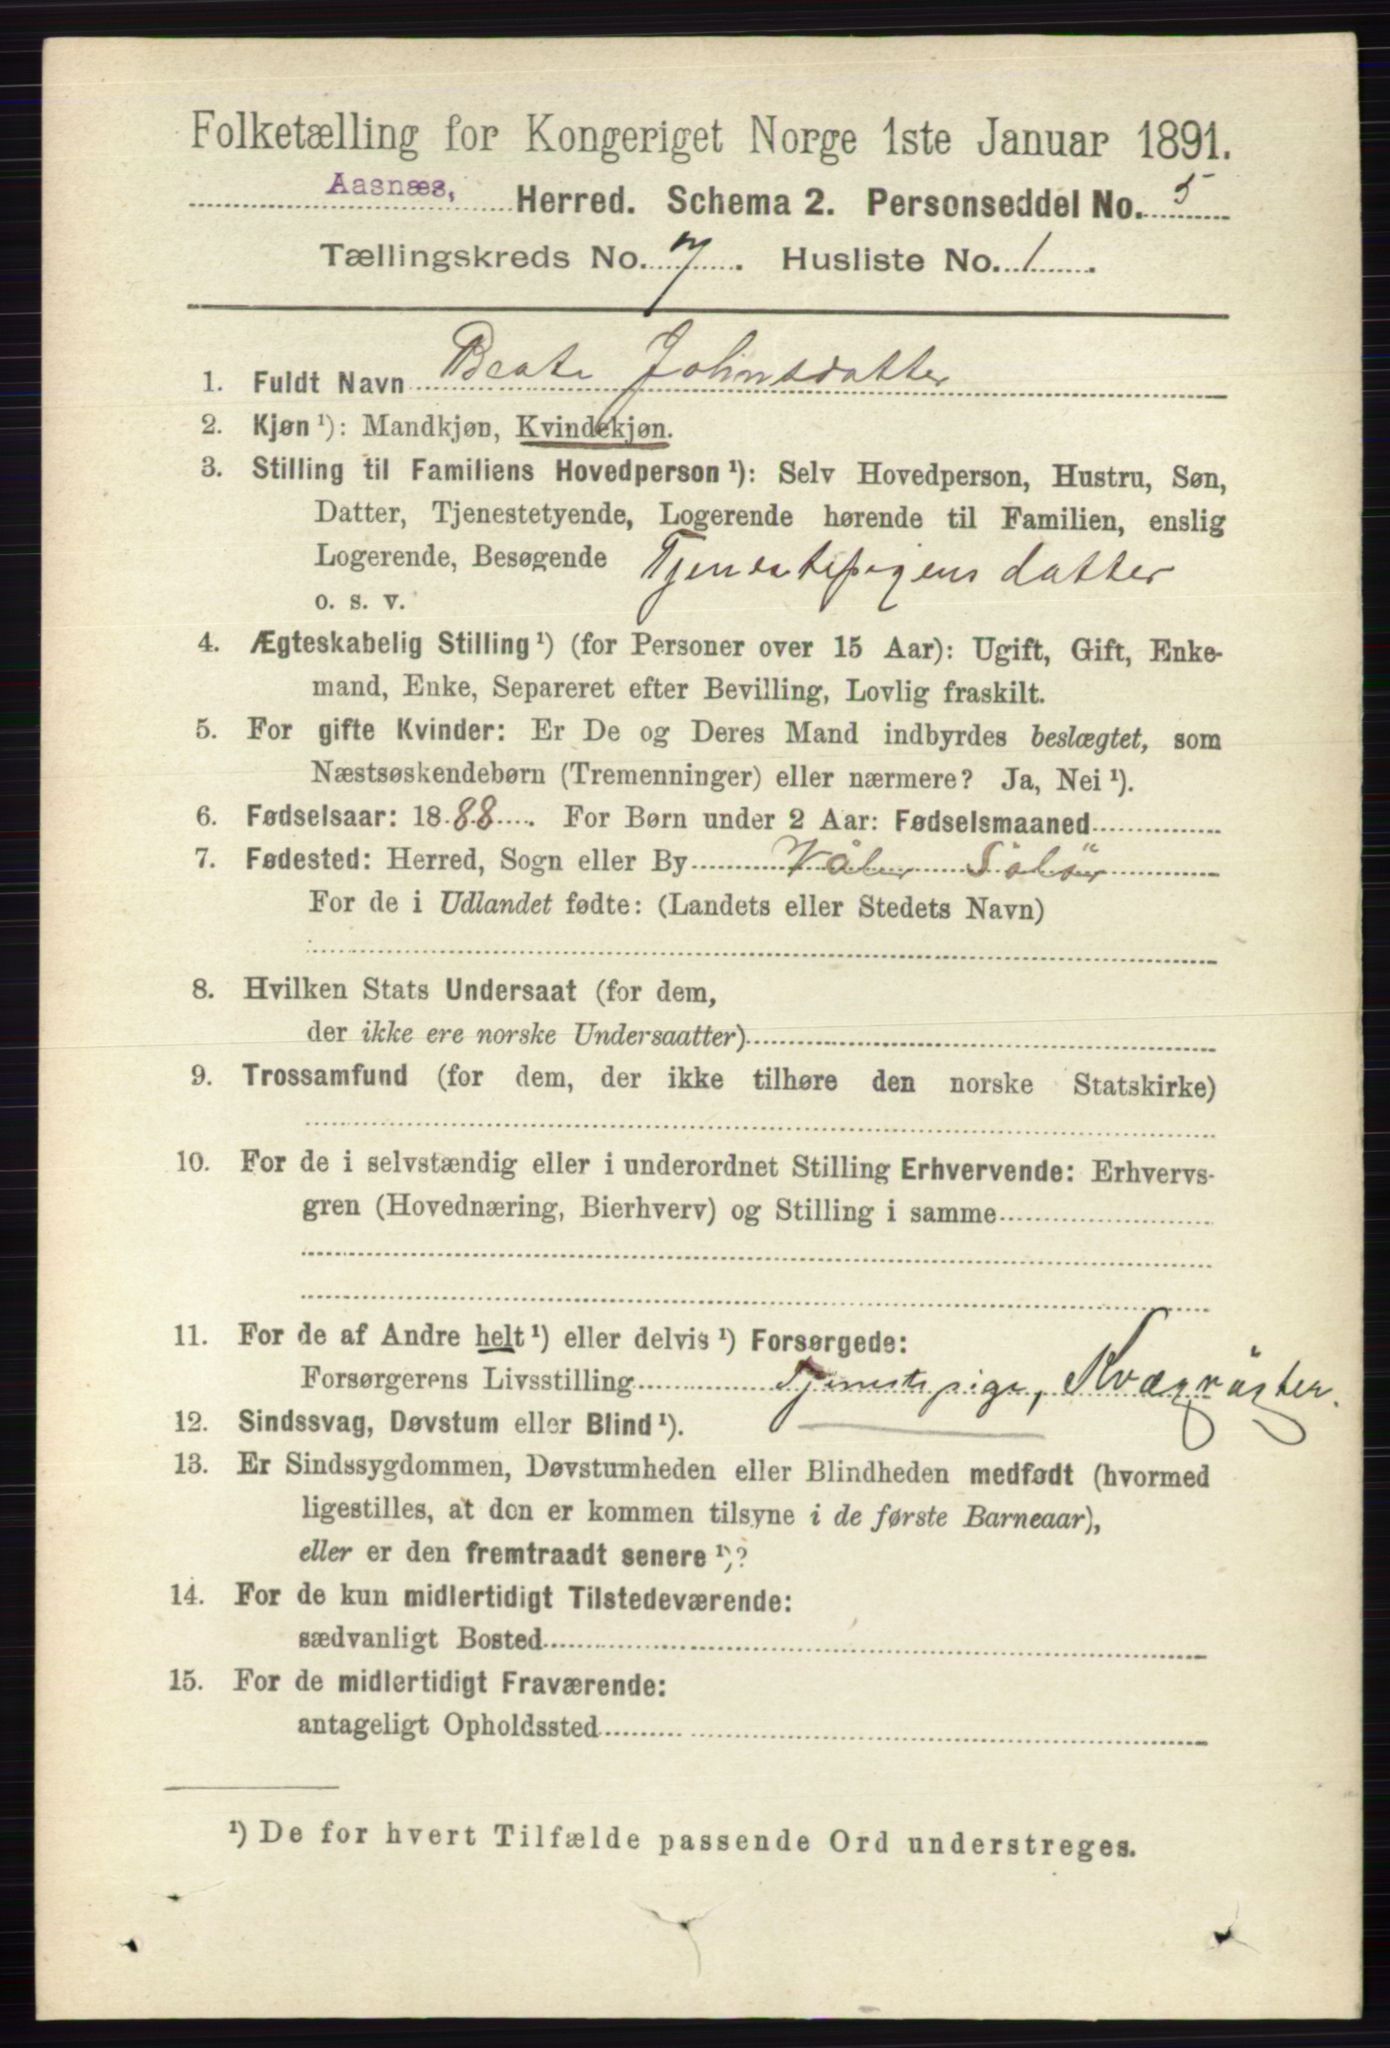 Folketælling for Kongeriget Norge 1ste Januar 1891.
Aasnæs, Herred. Schema 2. Personseddel No. 5
Tællingskreds No. 7. Husliste No. 1.
1. Fuldt Navn Beate Johnsdatter
2. Kjøn ¹): Mandkjøn, Kvindekjøn.
3. Stilling til Familiens Hovedperson ¹): Selv Hovedperson, Hustru, Søn,
Datter, Tjenestetyende, Logerende hørende til Familien, enslig
Logerende, Besøgende Tjenestepigens datter
o. s. v.
4. Ægteskabelig Stilling ¹) (for Personer over 15 Aar): Ugift, Gift, Enke-
mand, Enke, Separeret efter Bevilling, Lovlig fraskilt.
5. For gifte Kvinder: Er De og Deres Mand indbyrdes beslægtet, som
Næstsøskendebørn (Tremenninger) eller nærmere? Ja, Nei ¹).
6. Fødselsaar: 1888. For Børn under 2 Aar: Fødselsmaaned
7. Fødested: Herred, Sogn eller By Våler Solör
For de i Udlandet fødte: (Landets eller Stedets Navn)
8. Hvilken Stats Undersaat (for dem,
der ikke ere norske Undersaatter)
9. Trossamfund (for dem, der ikke tilhøre den norske Statskirke)
10. For de i selvstændig eller i underordnet Stilling Erhvervende: Erhvervs-
gren (Hovednæring, Bierhverv) og Stilling i samme
11. For de af Andre helt ¹) eller delvis ¹) Forsørgede:
Forsørgerens Livsstilling Tjenestepige, Kvægrögter.
12. Sindssvag, Døvstum eller Blind ¹).
13. Er Sindssygdommen, Døvstumheden eller Blindheden medfødt (hvormed
ligestilles, at den er kommen tilsyne i de første Barneaar),
eller er den fremtraadt senere ¹)?
14. For de kun midlertidigt Tilstedeværende:
sædvanligt Bosted
15. For de midlertidigt Fraværende:
antageligt Opholdssted
¹) De for hvert Tilfælde passende Ord understreges.